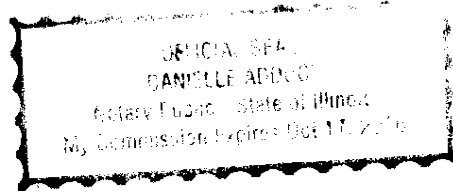 OFFICIAL SEAL
DANIELLE
Notary Public State of Illinois
My Commission Expires Oct 17,